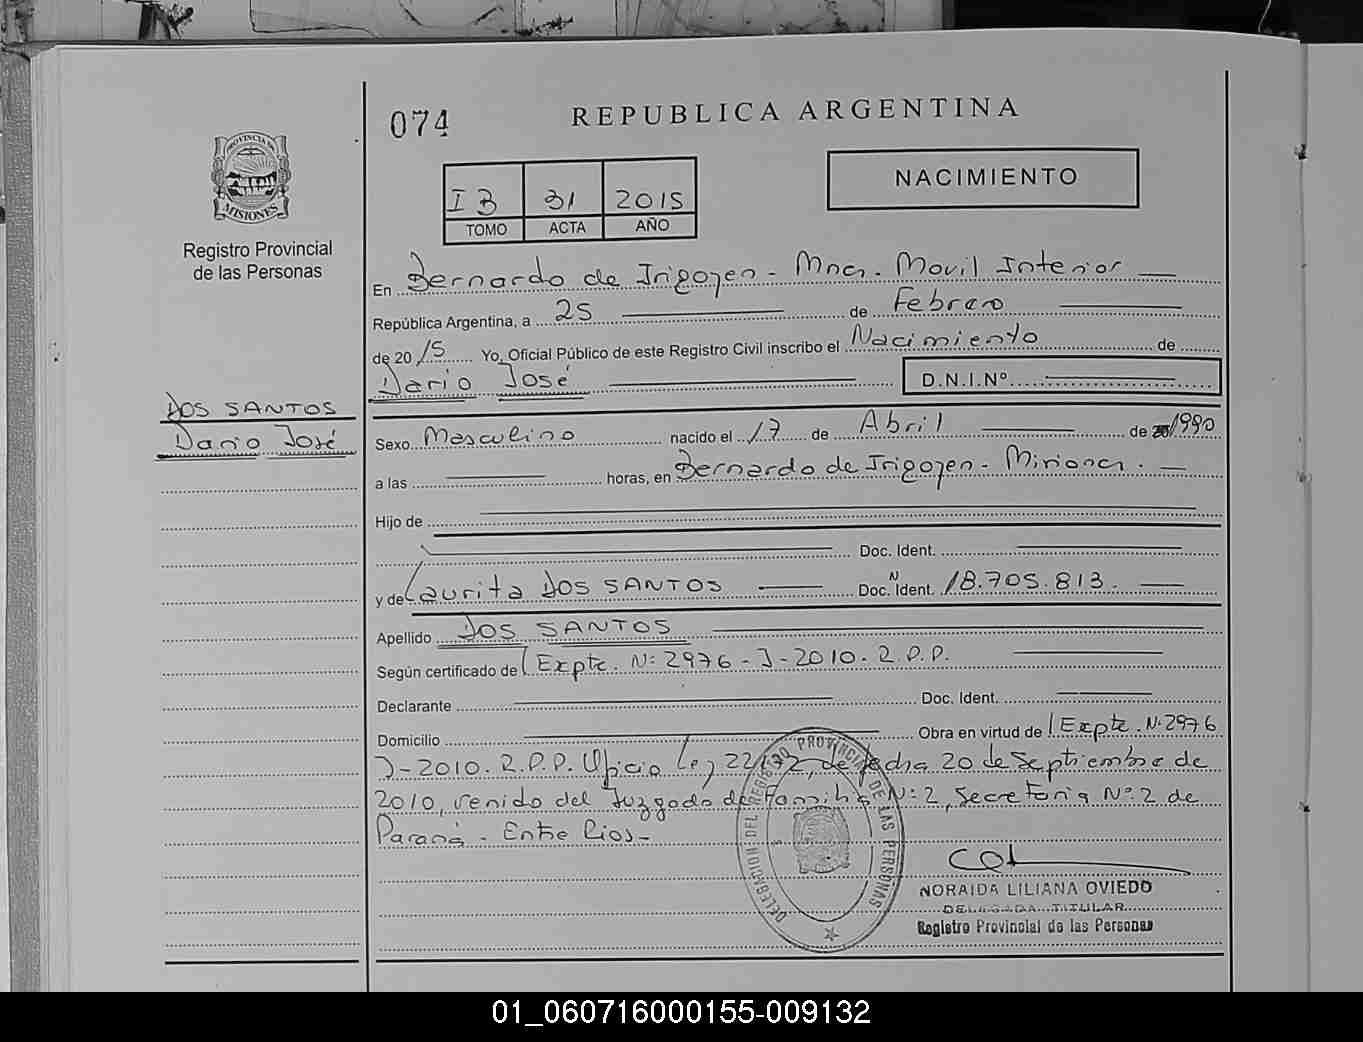 074
REPUBLICA ARGENTINA
PROVINCIA DE
MISIONES
Registro Provincial
de las Personas
NACIMIENTO
I B 31 2015
TOMO ACTA AÑO
En Bernardo de Irigoyen - Mnes. Movil Interior
República Argentina, a 25 de Febrero
de 2015 Yo, Oficial Público de este Registro Civil inscribo el Nacimiento de
Dario José D.N.I.Nº
DOS SANTOS
Dario José
Sexo Masculino nacido el 17 de Abril de 1990
a las horas, en Bernardo de Irigoyen - Misiones.
Hijo de
Doc. Ident.
y de Laurita DOS SANTOS Doc. N Ident. 18.705.813.
Apellido DOS SANTOS
Según certificado de Expte. Nº 2976 - J - 2010. R.P.P.
Declarante Doc. Ident.
Domicilio Obra en virtud de Expte. Nº 2976
J-2010. R.P.P. Oficio Ley 22172, de fecha 20 de Septiembre de
2010, venido del Juzgado de Familia Nº 2, Secretaria Nº 2 de
Paraná - Entre Rios-
DELEGACION DEL REGISTRO PROVINCIAL DE LAS PERSONAS
NORAIDA LILIANA OVIEDO
DELEGADA TITULAR
Registro Provincial de las Personas
01_060716000155-009132